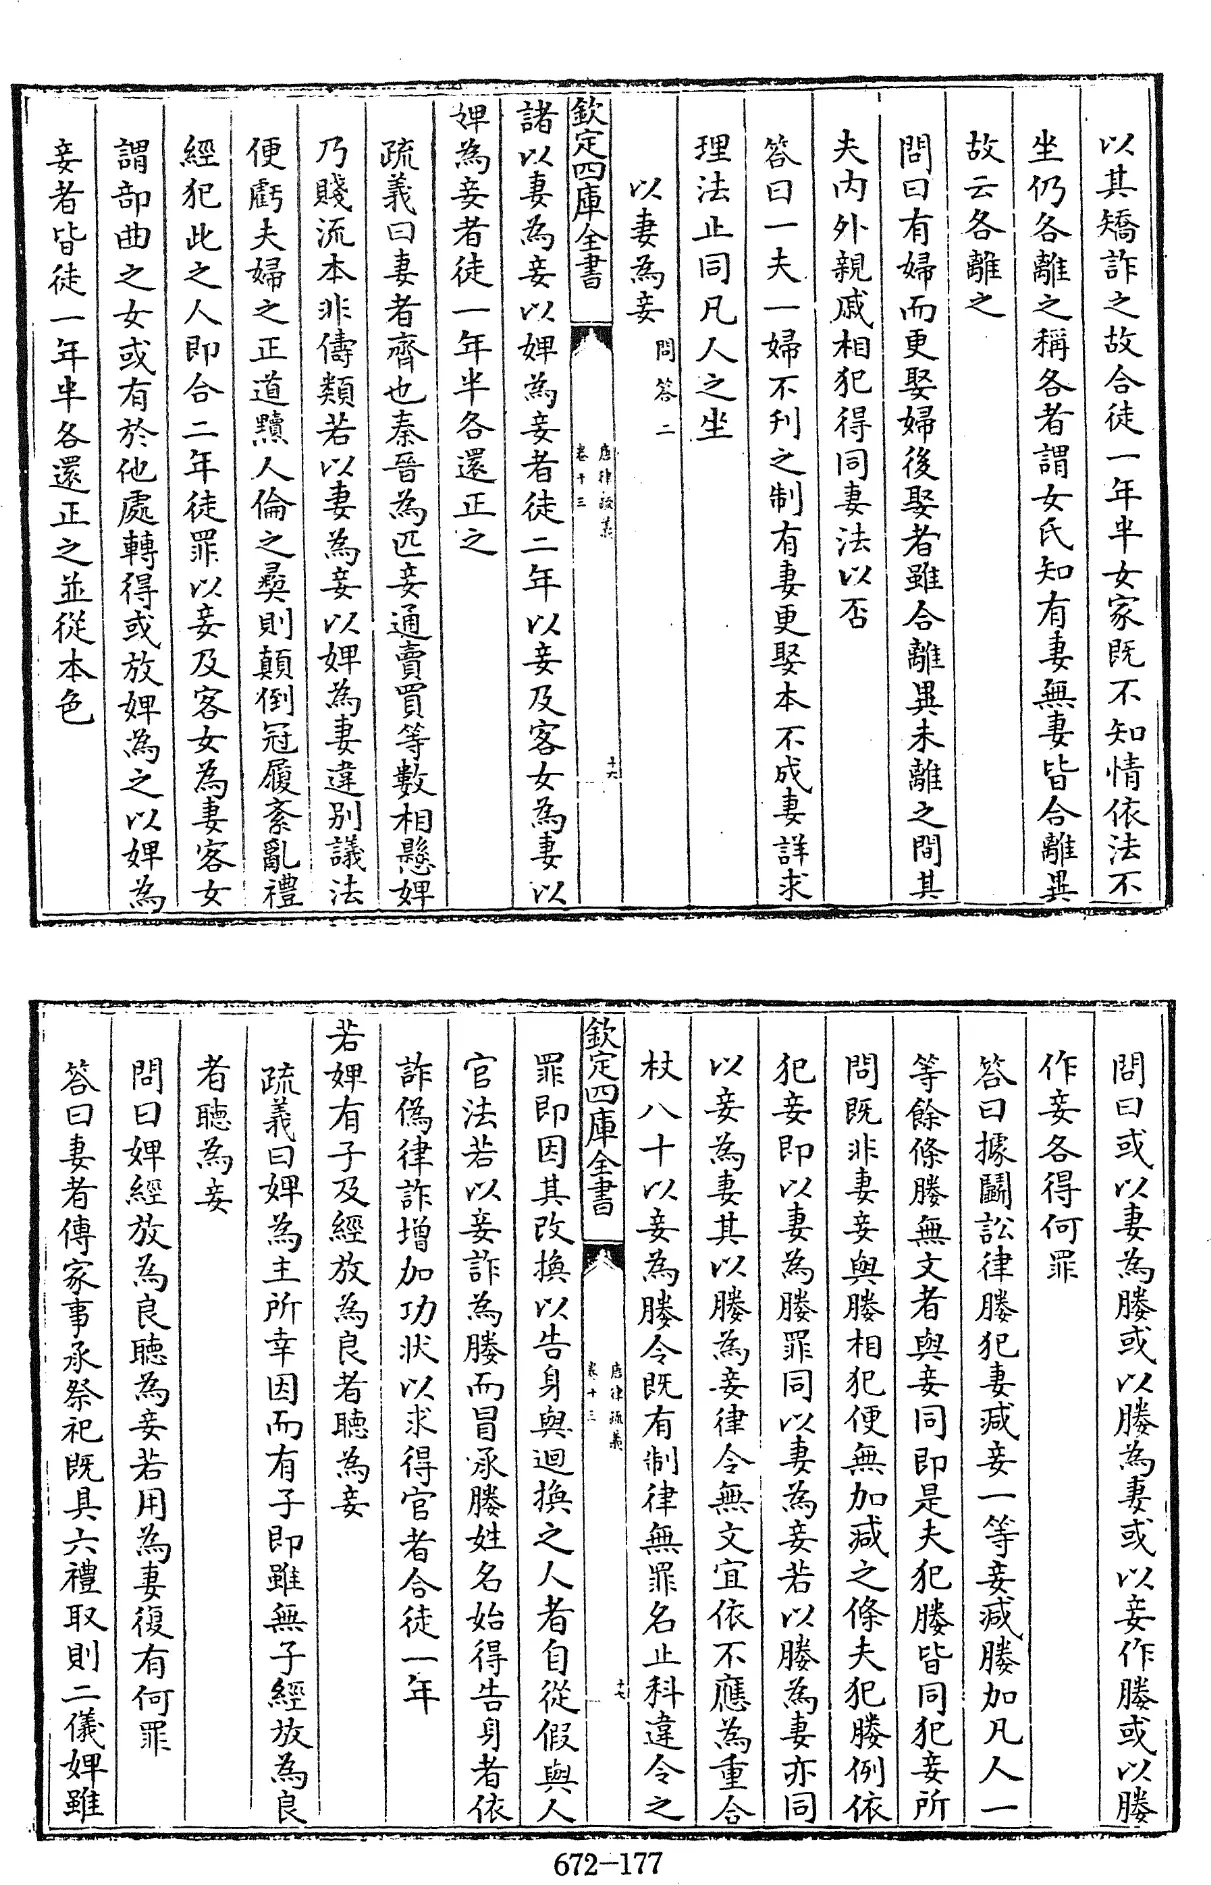 以其矯詐之故合徒一年半女家既不知情依法不
坐仍各離之稱各者謂女氏知有妻無妻皆合離異
故云各離之
問曰有婦而更娶婦後娶者雖合離異未離之間其
夫内外親戚相犯得同妻法以否
答曰一夫一婦不刋之制有妻更娶本不成妻詳求
理法止同凡人之坐
以妻為妾 問答二
欽定四庫全書
唐律疏義
卷十三
十六
諸以妻為妾以婢為妾者徒二年以妾及客女為妻以
婢為妾者徒一年半各還正之
疏義曰妻者齊也秦晉為匹妾通賣買等數相懸婢
乃賤流本非儔類若以妻為妾以婢為妻違别議法
便虧夫婦之正道黷人倫之彝則顛倒冠履紊亂禮
經犯此之人即合二年徒罪以妾及客女為妻客女
謂部曲之女或有於他處轉得或放婢為之以婢為
妾者皆徒一年半各還正之並從本色
問曰或以妻為媵或以媵為妻或以妾作媵或以媵
作妾各得何罪
答曰據鬬訟律媵犯妻減妾一等妾減媵加凡人一
等餘條媵無文者與妾同即是夫犯媵皆同犯妾所
問既非妻妾與媵相犯便無加減之條夫犯媵例依
犯妾即以妻為媵罪同以妻為妾若以媵為妻亦同
以妾為妻其以媵為妾律令無文宜依不應為重合
杖八十以妾為媵令既有制律無罪名止科違令之
欽定四庫全書
唐律疏義
卷十三
十七
罪即因其改換以告身與迴換之人者自從假與人
官法若以妾詐為媵而冒承媵姓名始得告身者依
詐偽律詐增加功狀以求得官者合徒一年
若婢有子及經放為良者聽為妾
疏義曰婢為主所幸因而有子即雖無子經放為良
者聽為妾
問曰婢經放為良聽為妾若用為妻復有何罪
答曰妻者傳家事承祭祀既具六禮取則二儀婢雖
672-177